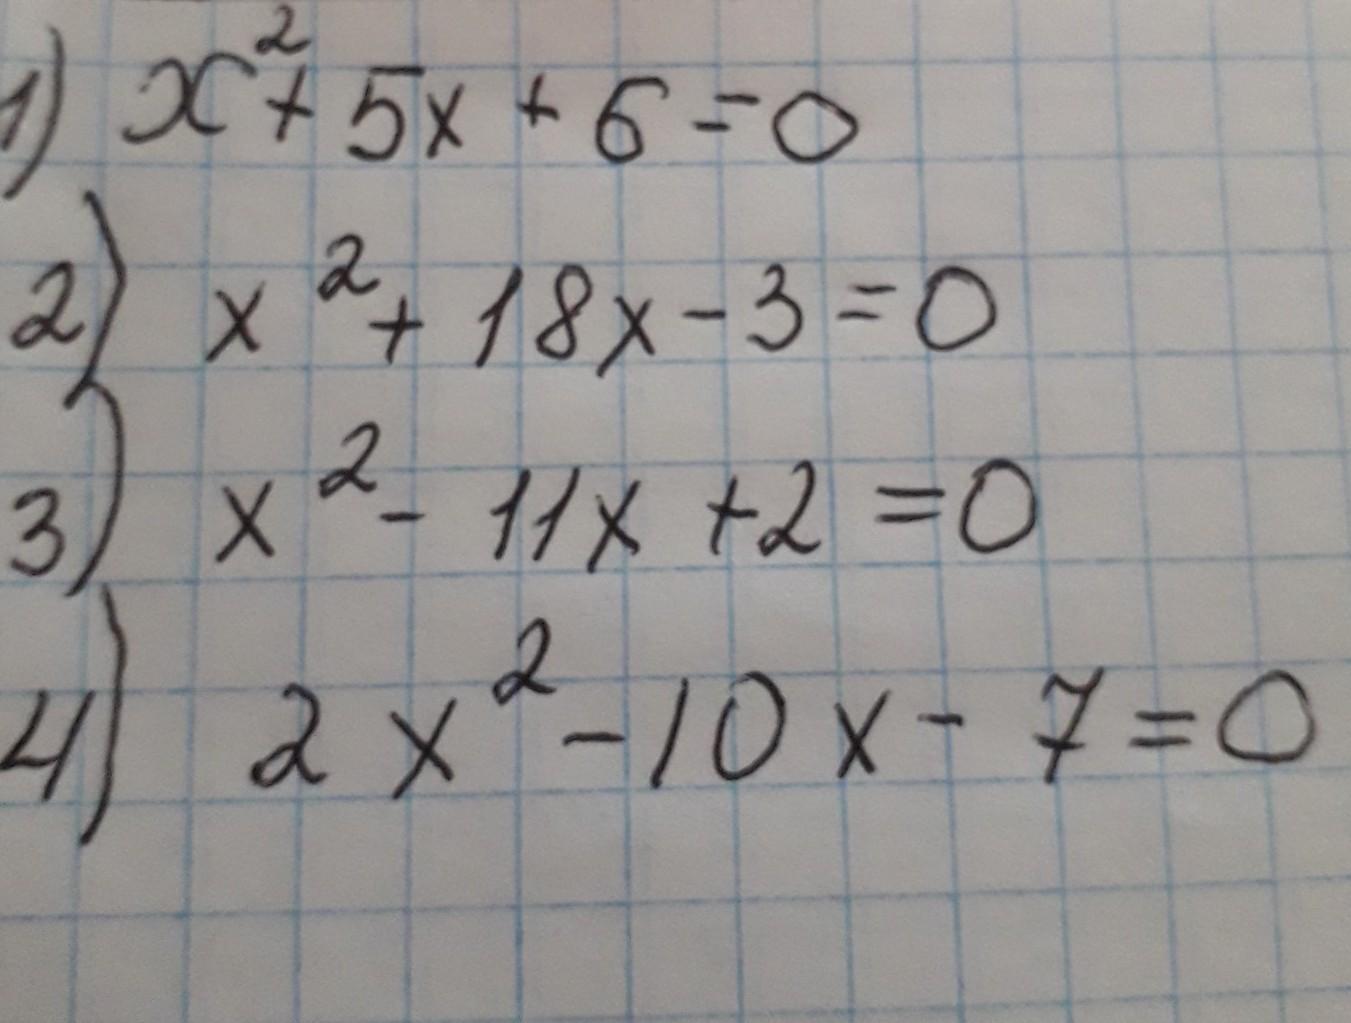 1) x² + 5x + 6 = 0
2) x² + 18x - 3 = 0
3) x² - 11x + 2 = 0
4) 2x² - 10x - 7 = 0